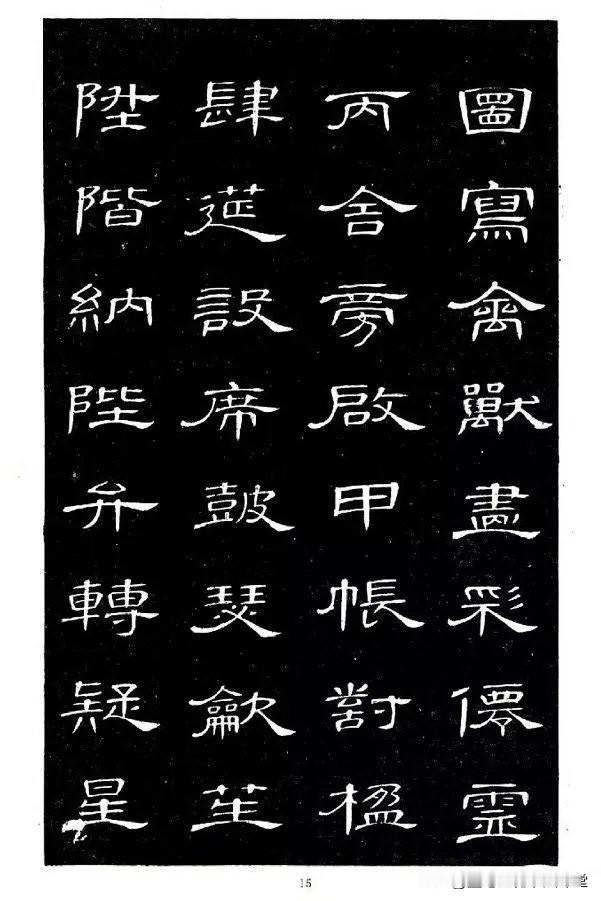 圖寫禽獸畫彩僊靈
丙舍旁啟甲帳對楹
肆筵設席皷瑟龡笙
陞階納陛弁轉疑星
15